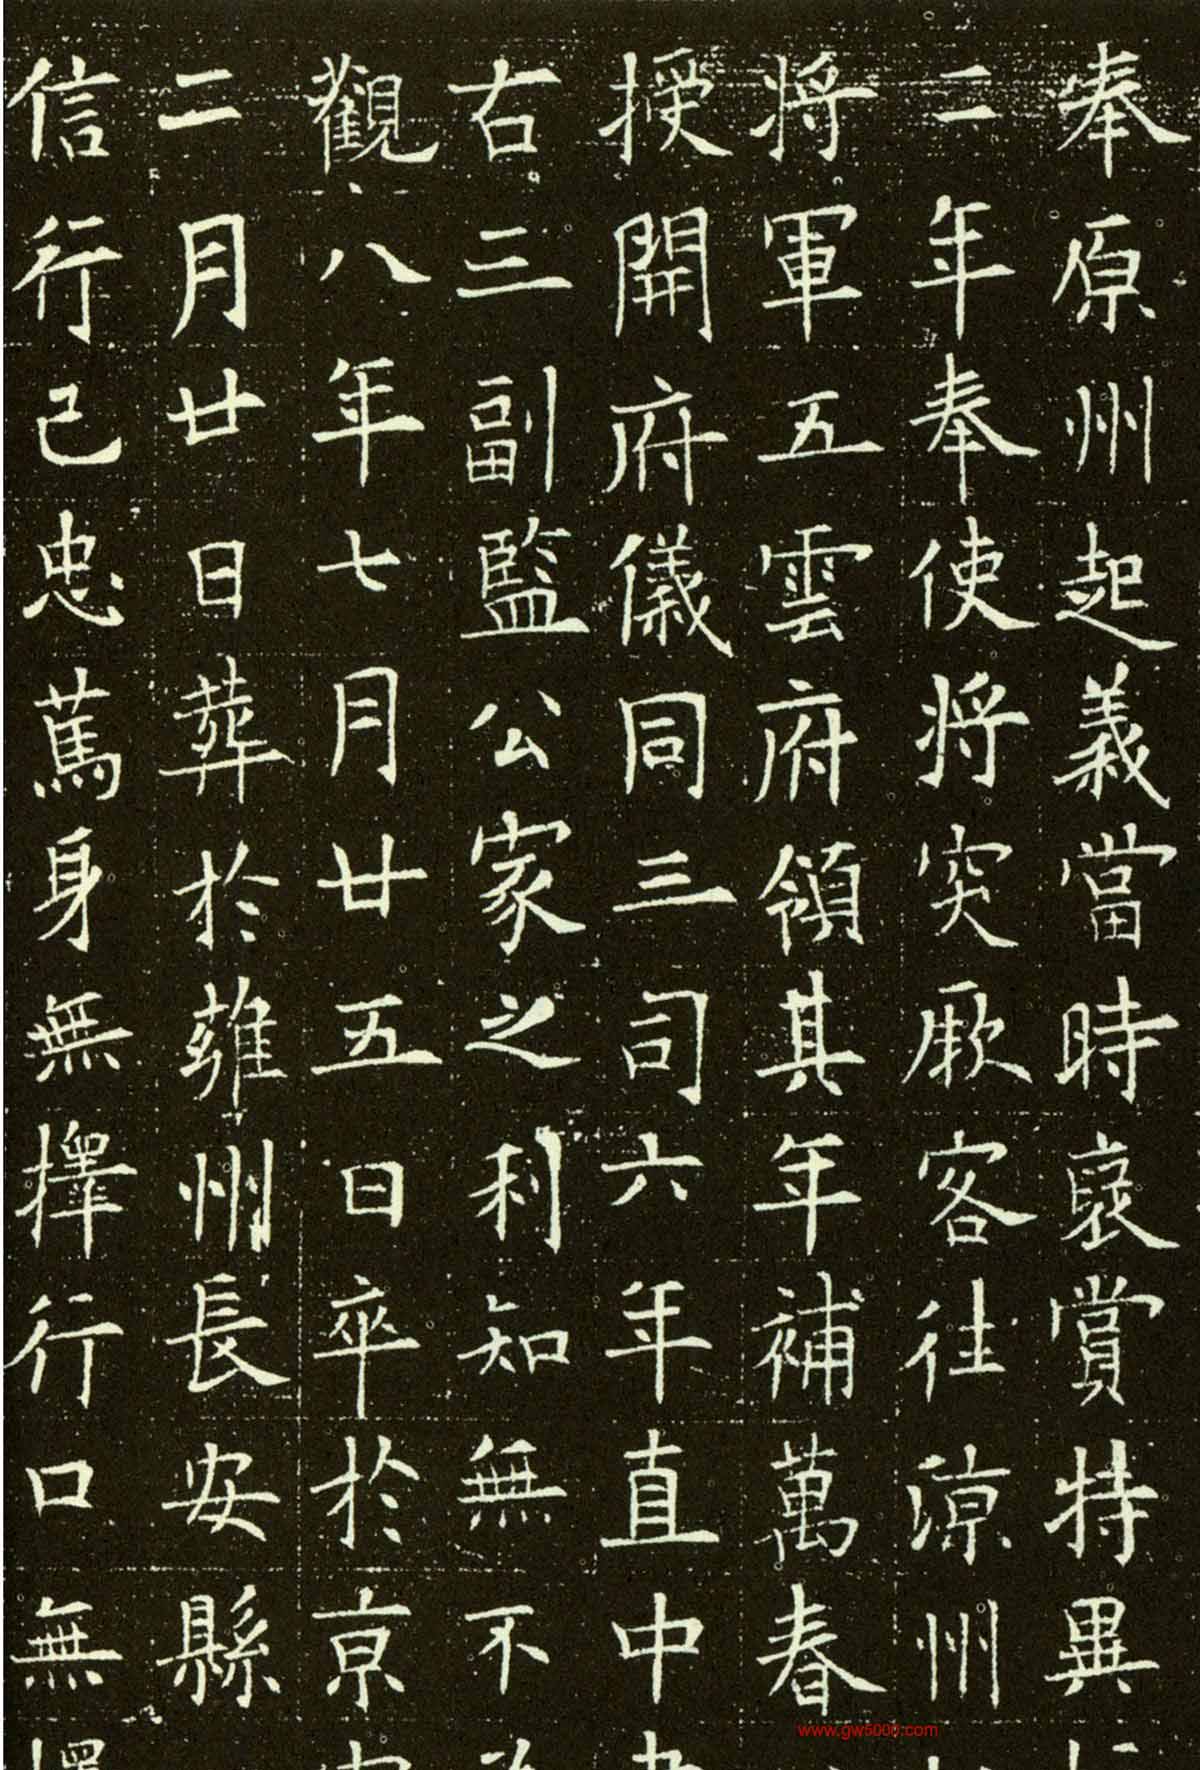 奉原州起義當時襃賞特異
二年奉使將突厥客往涼州
将軍五雲府領其年補萬春
授開府儀同三司六年直中
右三副監公家之利知無不
觀八年七月廿五日卒於京
二月廿日葬於雍州長安縣
信行己忠蔫身無擇行口無擇
www.gw5000.com